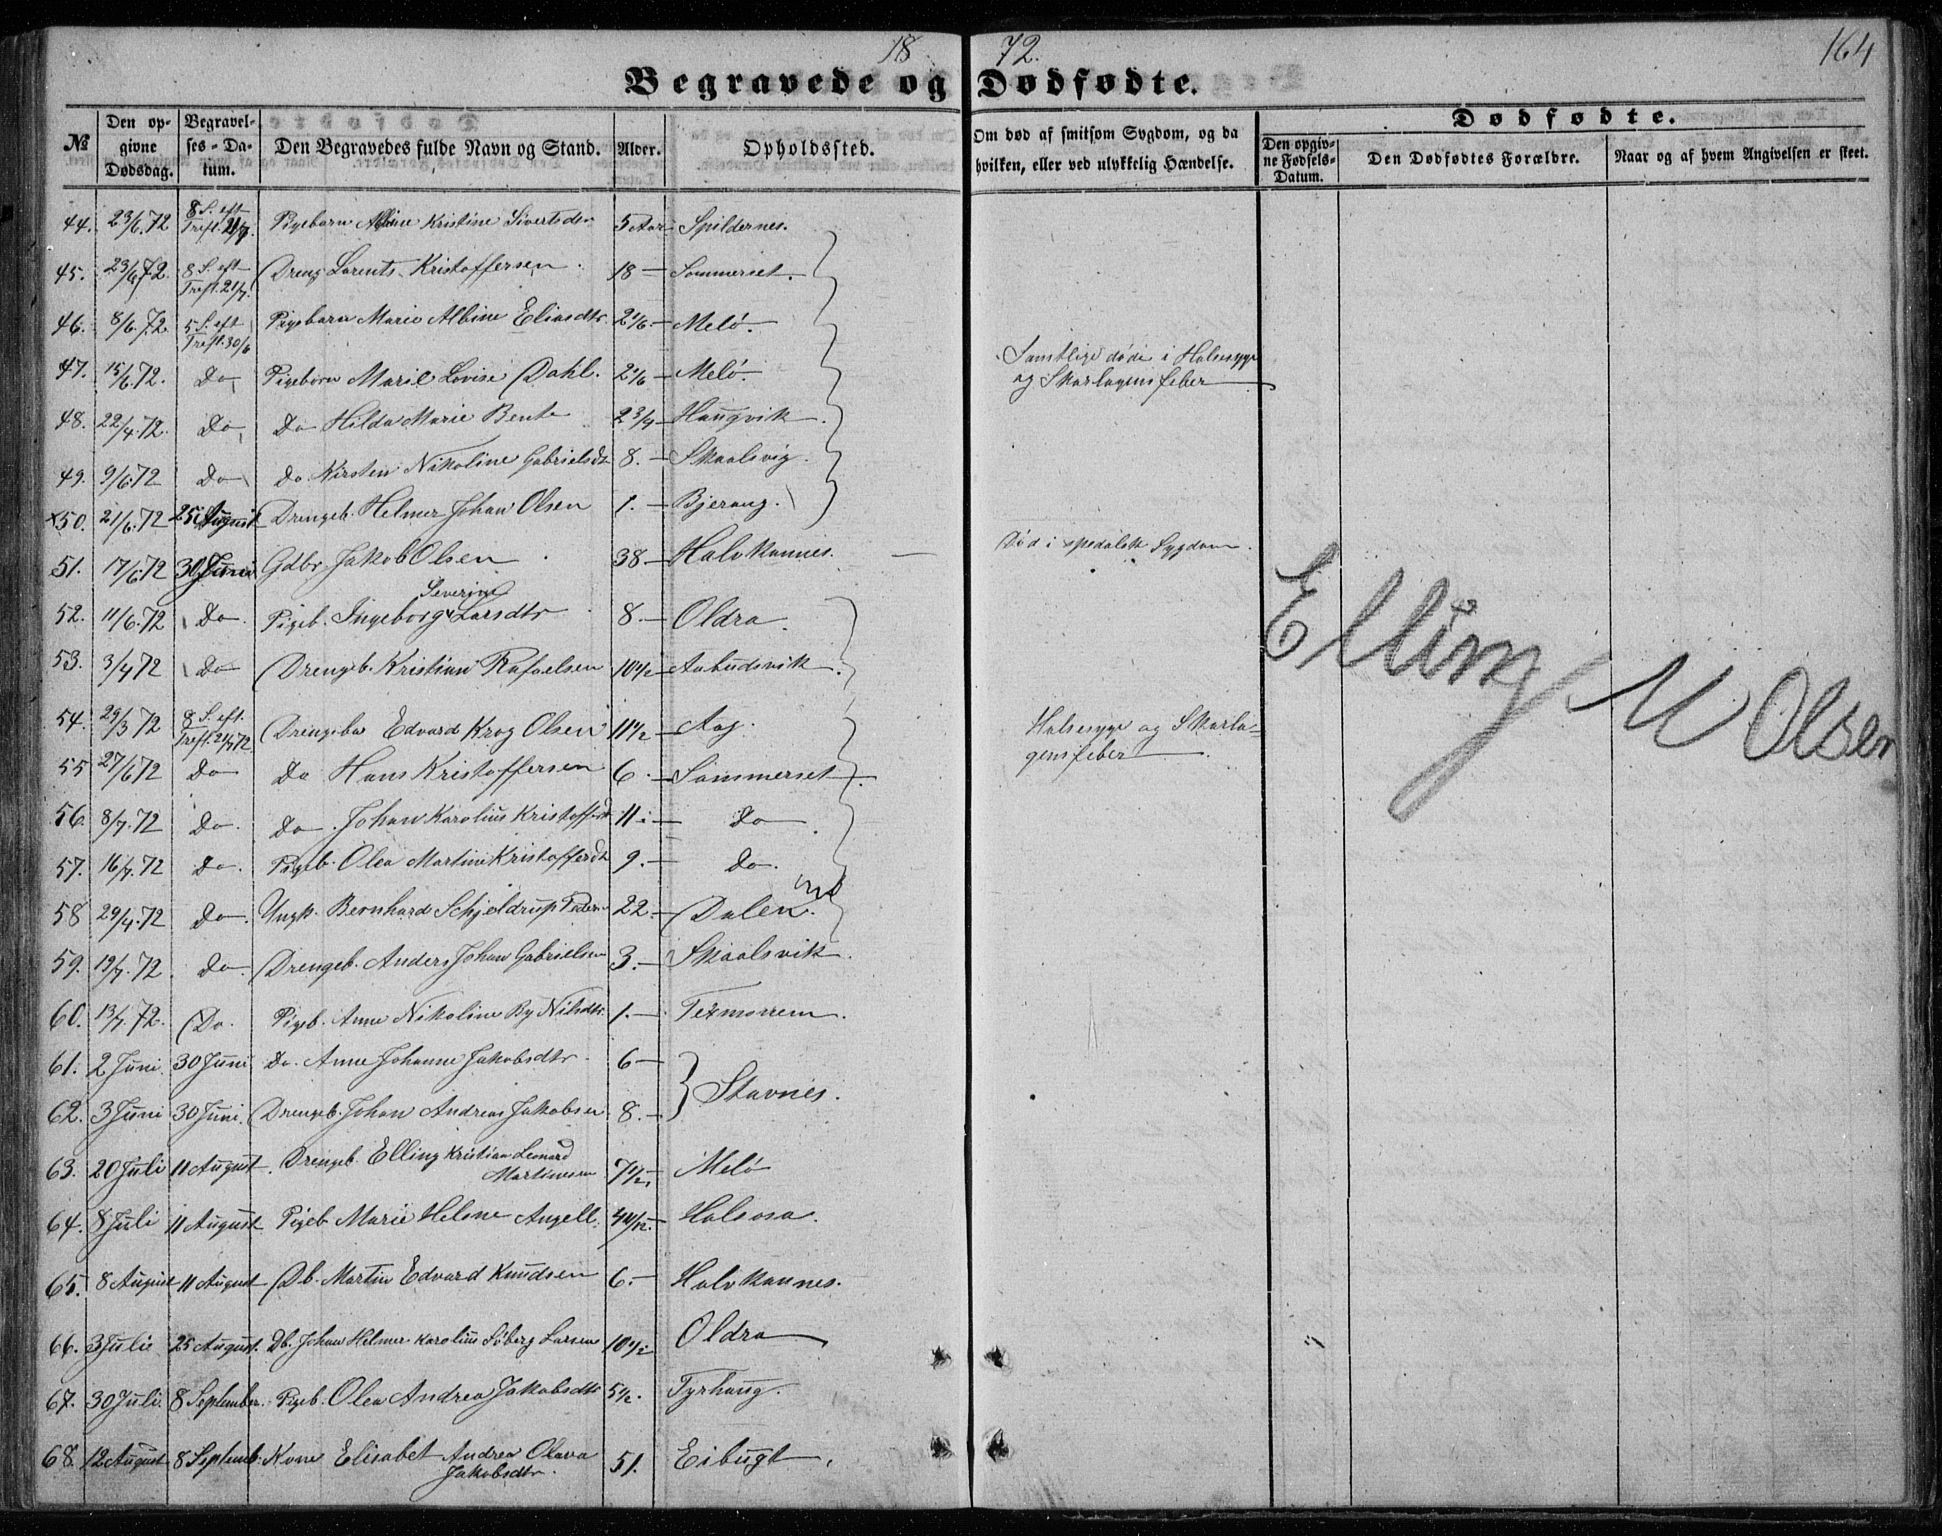 18 72. 164
Begravede og Dødfødte.
№ Den opgivne Dødsdag. Begravelses-Datum. Den Begravedes fulde Navn og Stand. Alder. Opholdssted. Om død af smitsom Sygdom, og da hvilken, eller ved ulykkelig Hændelse. Dødfødte. Den opgivne Fødsels-Datum. Den Dødfødtes Forældre. Naar og af hvem Angivelsen er skeet.
44. 23/6.72 8 S. eft Tref. 21/7. Pigebarn Albine Kristine Sivertsdtr 5 Aar Spildernes.
45. 23/6.72. 8 S. eft Tref. 21/7. Dreng Lorents Kristoffersen. 18 — Sommerset.
46. 8/6.72. 5 S. eft Tref. 30/6 Pigebarn Marie Albine Eliasdtr 2 1/6 — Melö.
47. 15/6.72. Do Pigebarn Marie Lovise Dahl. 2 1/6 — Melö. Samtlige døde i Halssyge og Skarlagensfeber
48. 22/4.72. Do Do Hilda Marie Bent 2 3/4 — Haugvik.
49. 9/6.72 Do Do. Kirsten Nikoline Gabrielsdt 8. — Skaalsvig.
50. 21/6.72 25 August Drengeb. Helmer Johan Olsen 1. — Bjerang.
51. 17/6.72 30 Juni Gdbr. Jakob Olsen 38 — Halvkannes. — Död i spedalsk Sygdom.
52. 11/6.72 Do Pigeb. Ingeborg Severine Larsdtr 8. — Oldra.
53. 3/4 72 Do Drengeb. Kristian Rafaelsen 10 1/2 — Aabudsvik.
54. 29/3 72 8 S. eft. Tref. 21/7 72 Drengeba Edvard Krog Olsen 11 1/2 — Aag. Halssyge og Skarlagensfeber
55 27/6 72 Do Do Hans Kristoffersen 6. — Sommerset
56. 8/7.72 Do. Do. Johan Karolius Kristoffers 11 — Do
57. 16/7.72 Do. Pigeb Olea Martine Kristofferdt 9. — Do.
58 29/4.72 Do. Ungk. Bernhard Schjeldrup Peders 22. — Dalen.
59. 19/7.72. Do. Drengeb. Anders Johan Gabrielsen 3. — Skaalsvik.
60. 13/7.72. Do. Pigeb. Anne Nikoline By Nilsdtr. 1. — Texmorrem.
61. 2 Juni. 30 Juni Do. Anne Johanne Jakobsdtr. 6 —
62. 3 Juni 30 Juni. Drengeb. Johan Andreas Jakobsen 8. — Stavnes.
63. 20 Juli 11 August. Drengeb. Elling Kristian Leonard Martinusen 7 1/2. Melö
64. 8 Juli 11 August Pigeb Marie Helene Angell. 4 11/12. — Halsosa.
65. 8 August 11 August Db. Martin Edvard Knudsen 6. — Halvkannes.
66. 3 Juli 25 August. Db. Johan Helmer Karolius Söberg Larsen 10 1/2 Oldra
67. 30 Juli. 8 September. Pigeb. Olea Andrea Jakobsdtr 5 1/2. Tyrhaug.
68. 12 August 8 Septemb. Kone Elisabet Andrea Olava Jakobsdtr. 51. Eibugt.
Elling M Olsen